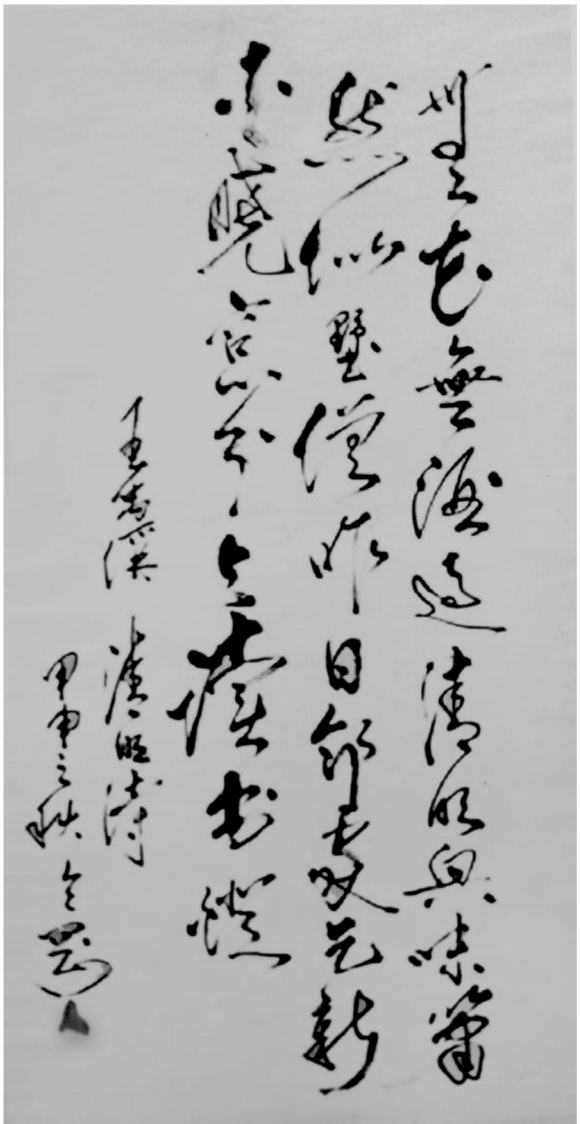 無花無酒過清明興味蕭
然似墅僧昨日鄰家乞新
火曉窓分与讀書燈
王禹偁 清明詩
甲申之秋